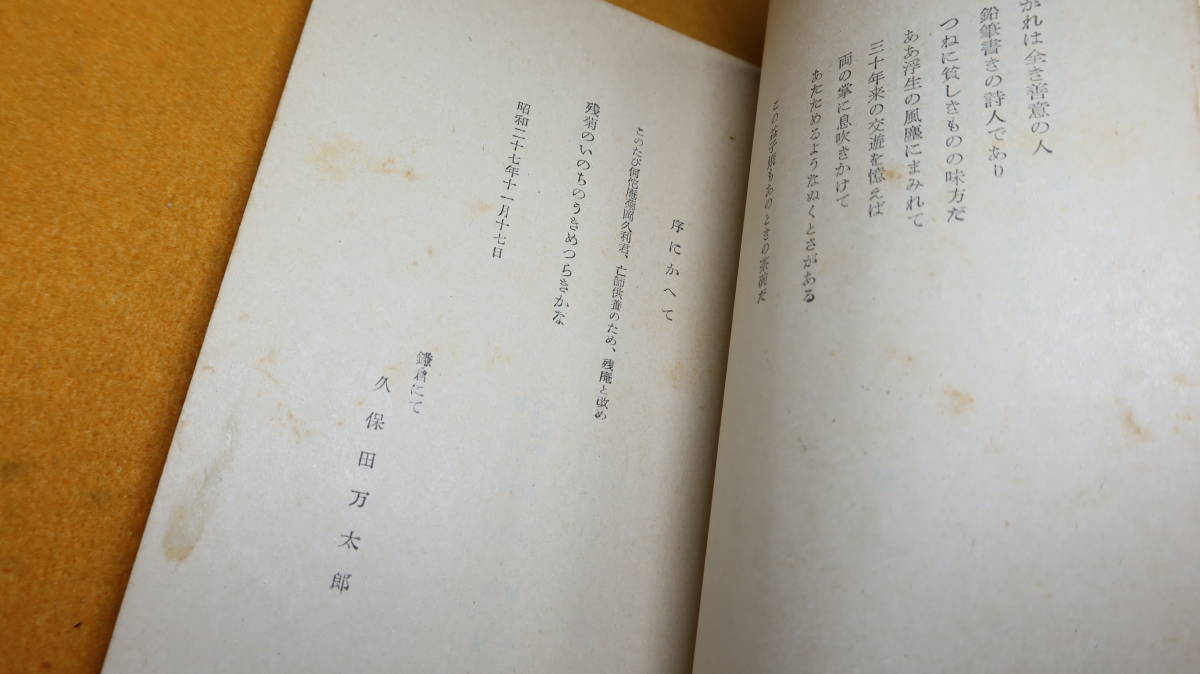 かれは全き善意の人
鉛筆書きの詩人であり
つねに貧しきものの味方だ
ああ浮生の風塵にまみれて
三十年来の交遊を憶えば
両の掌に息吹きかけて
あたためるようなぬくとさがある
この益子焼もあのときの茶碗だ
序にかへて
このたび何佗庵菊岡久利君、亡師供養のため、残庵と改め
残菊のいのちのうきめつらきかな
昭和二十七年十一月十七日
鎌倉にて
久保田万太郎